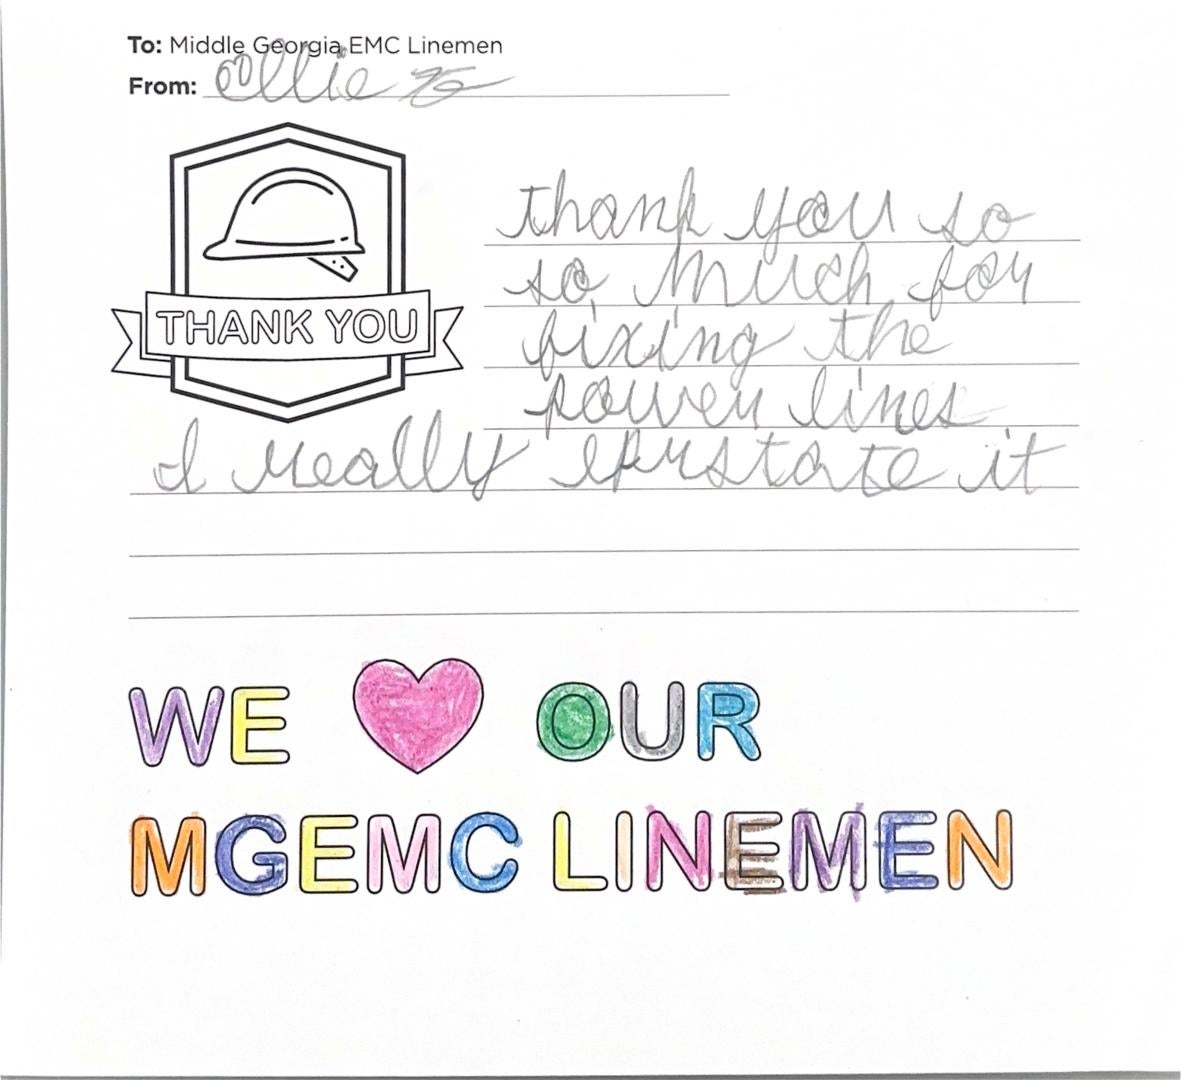 To: Middle Georgia EMC Linemen
From: Ollie
thank you so
so much for
fixing the
THANK YOU
power lines
I really eprstate it
WE OUR
MGEMC LINEMEN